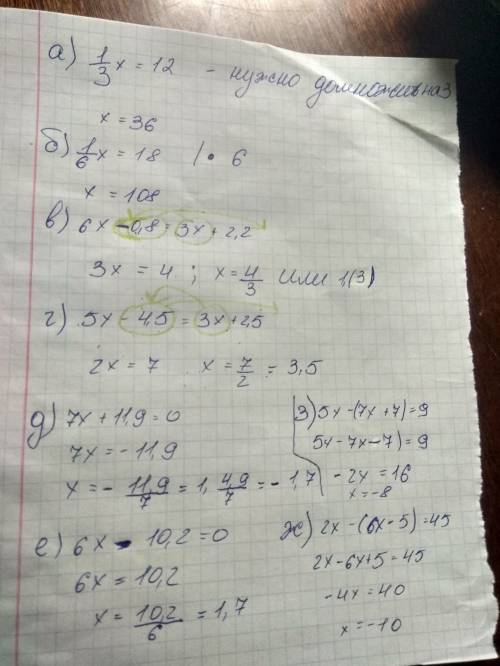 а) 1/3 x = 12 - нужно домножить на 3
x = 36
б) 1/6 x = 18 | • 6
x = 108
в) 6x - 0,8 = 3x + 2,2
3x = 4 ; x = 4/3 или 1,(3)
г) 5x - 4,5 = 3x + 2,5
2x = 7 x = 7/2 = 3,5
д) 7x + 11,9 = 0
7x = - 11,9
x = - 11,9/7 = 1, 4,9/7 = - 1,7
е) 6x - 10,2 = 0
6x = 10,2
x = 10,2/6 = 1,7
з) 5x - (7x + 7) = 9
5x - 7x - 7) = 9
- 2x = 16
x = - 8
ж) 2x - (6x - 5) = 45
2x - 6x + 5 = 45
- 4x = 40
x = - 10